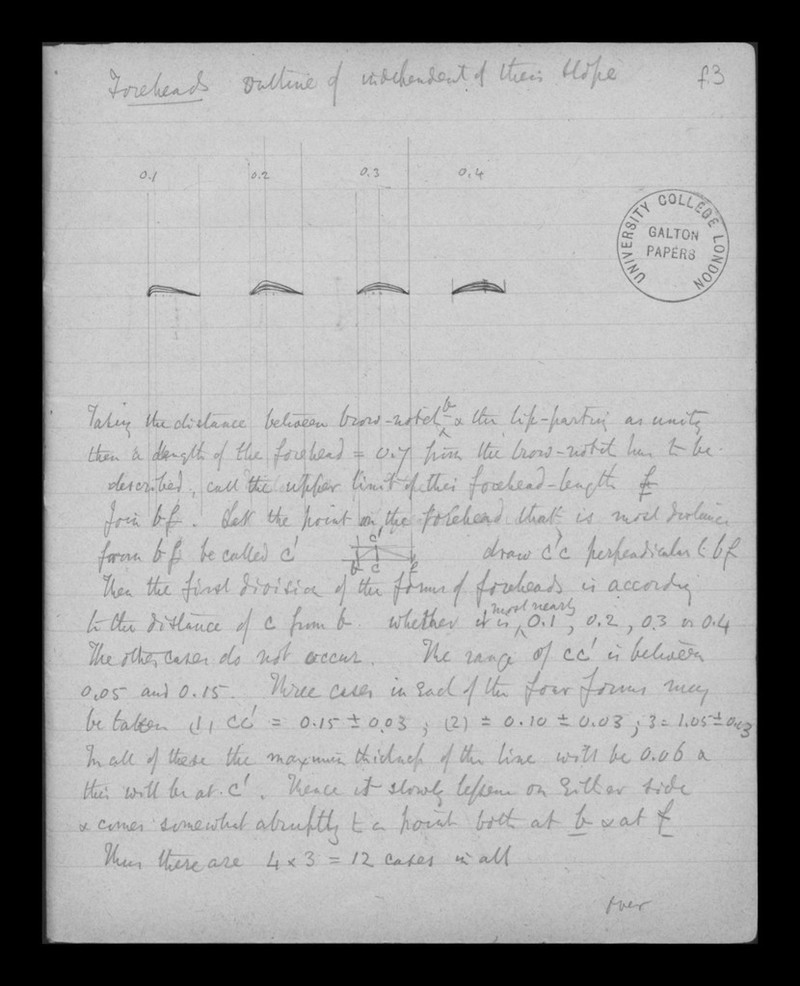 Foreheads outline of independent of their slope f.3
0.1 0.2 0.3 0.4
UNIVERSITY COLLEGE LONDON
GALTON
PAPERS
Taking the distance between brow-notch b & the lip-parting as unity
then a length of the forehead = 0.7 from the brow-notch has to be
described, call the upper limit of this forehead-length f
Join bf. Let the point on the forehead that is most distant
from bf be called c' draw c'c perpendicular to bf
c'
b c f
Then the first division of the forms of foreheads is according
to the distance of c from b. whether it is most nearly 0.1, 0.2, 0.3 or 0.4
The other cases do not occur. The range of cc' is between
0.05 and 0.15. Three cases in each of the four forms may
be taken (1) cc' = 0.15 ± 0.03; (2) ± 0.10 ± 0.03; 3 = 1.05 ± 0.03
In all of these the maximum thickness of the line will be 0.06 &
this will be at c'. Thence it slowly lessens on either side
& comes somewhat abruptly to a point both at b & at f
Thus there are 4 x 3 = 12 cases in all
over